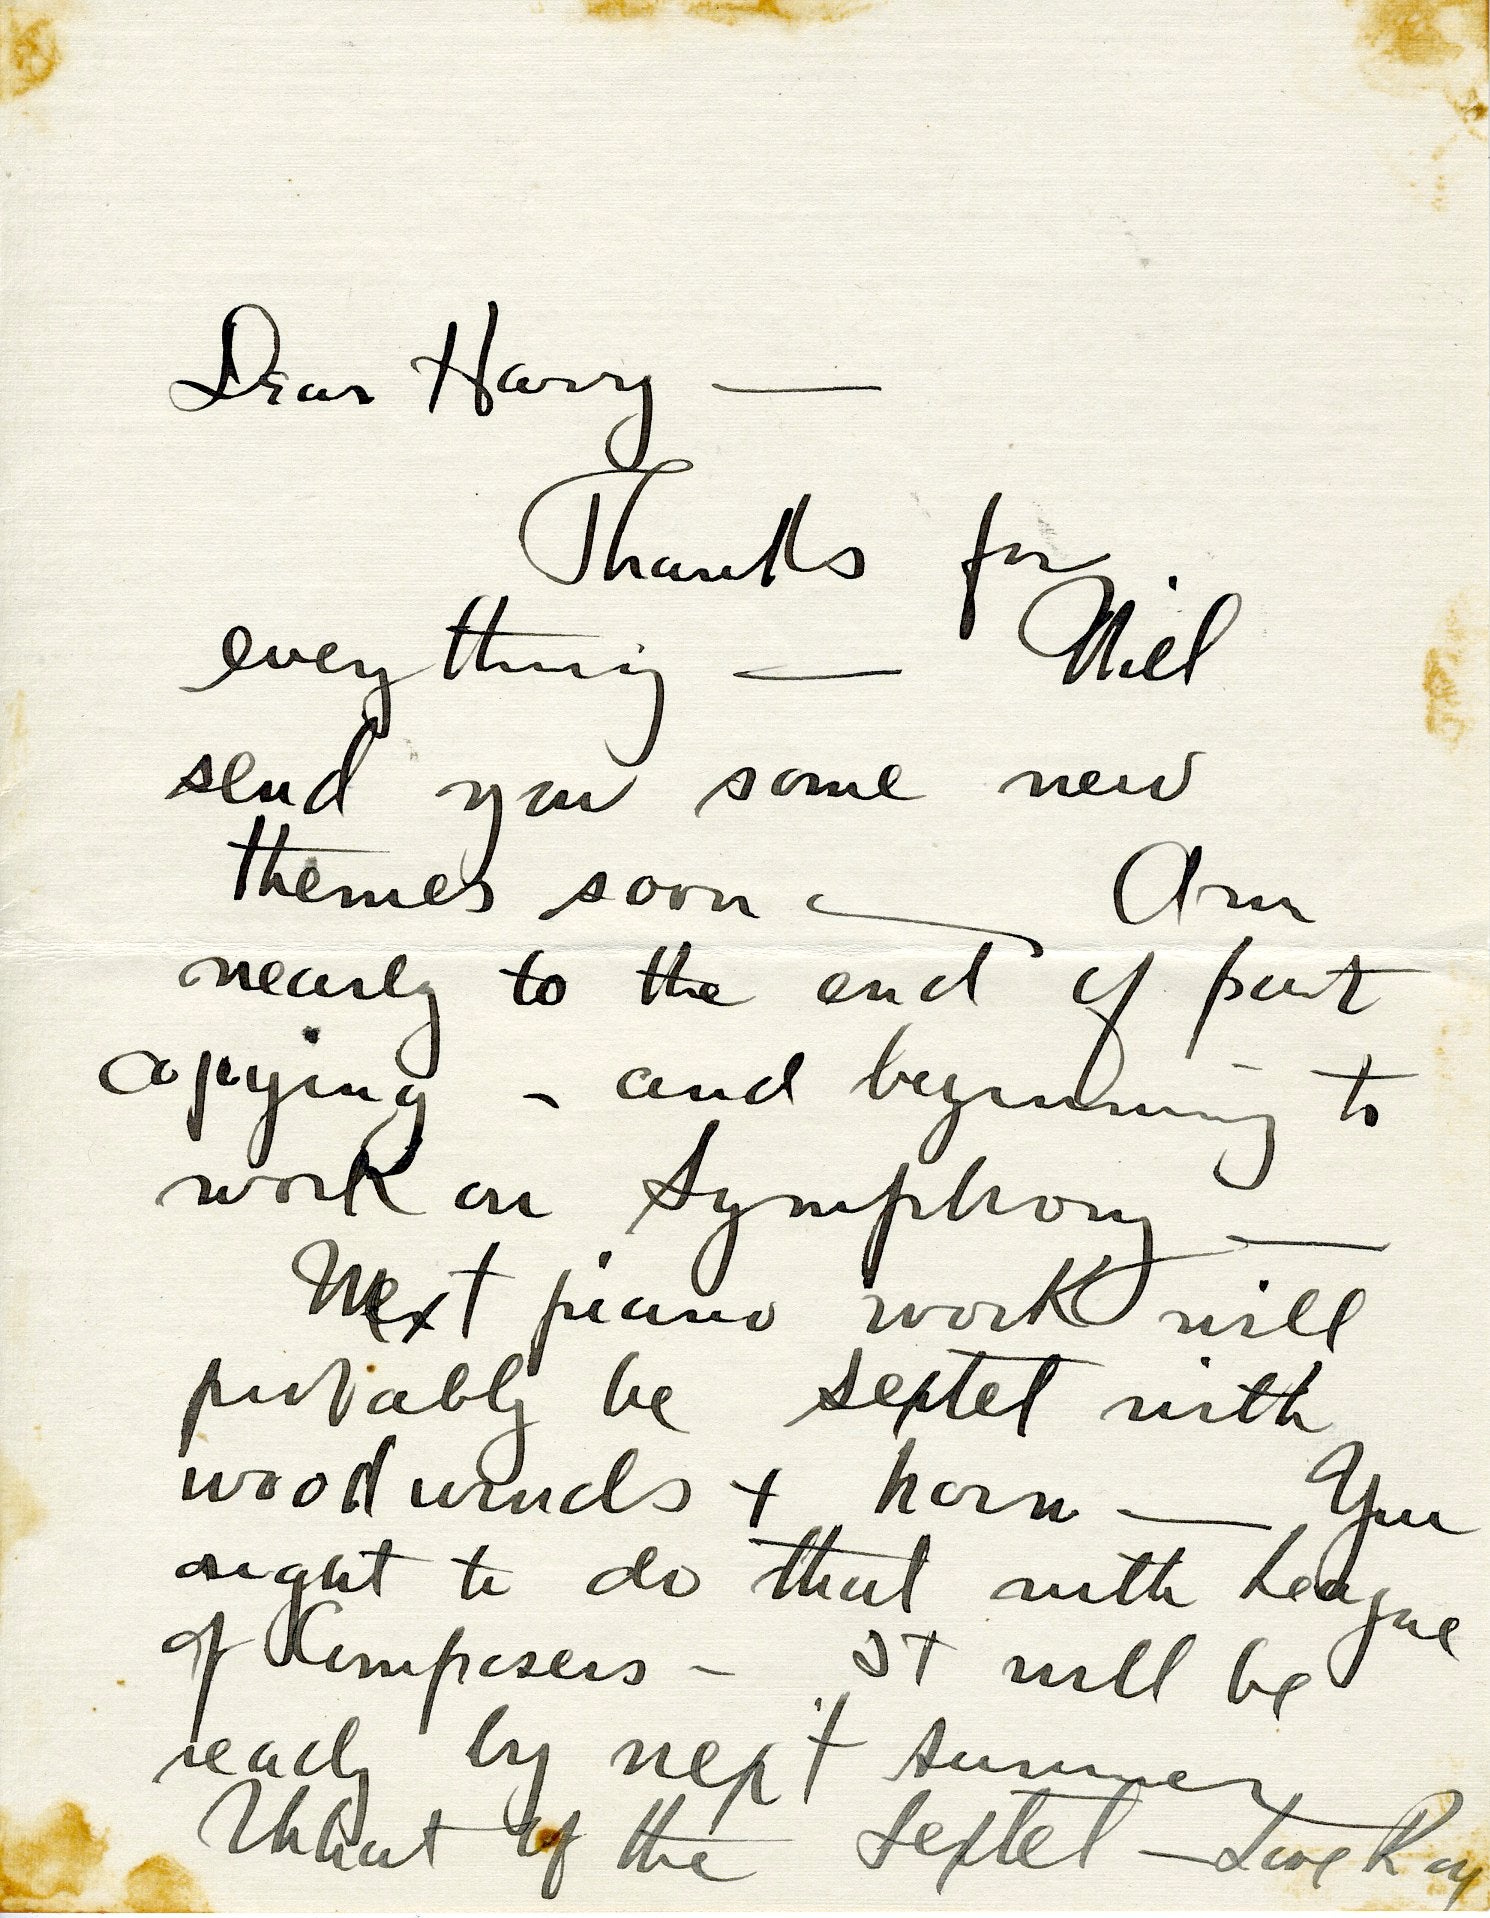 Dear Harry —
Thanks for
everything — Will
send you some new
themes soon — Am
nearly to the end of part
copying - and beginning to
work on Symphony —
Next piano work will
probably be sextet with
woodwinds + horn — You
ought to do that with League
of Composers - It will be
ready by next summer
What of the Sextet — Love Roy